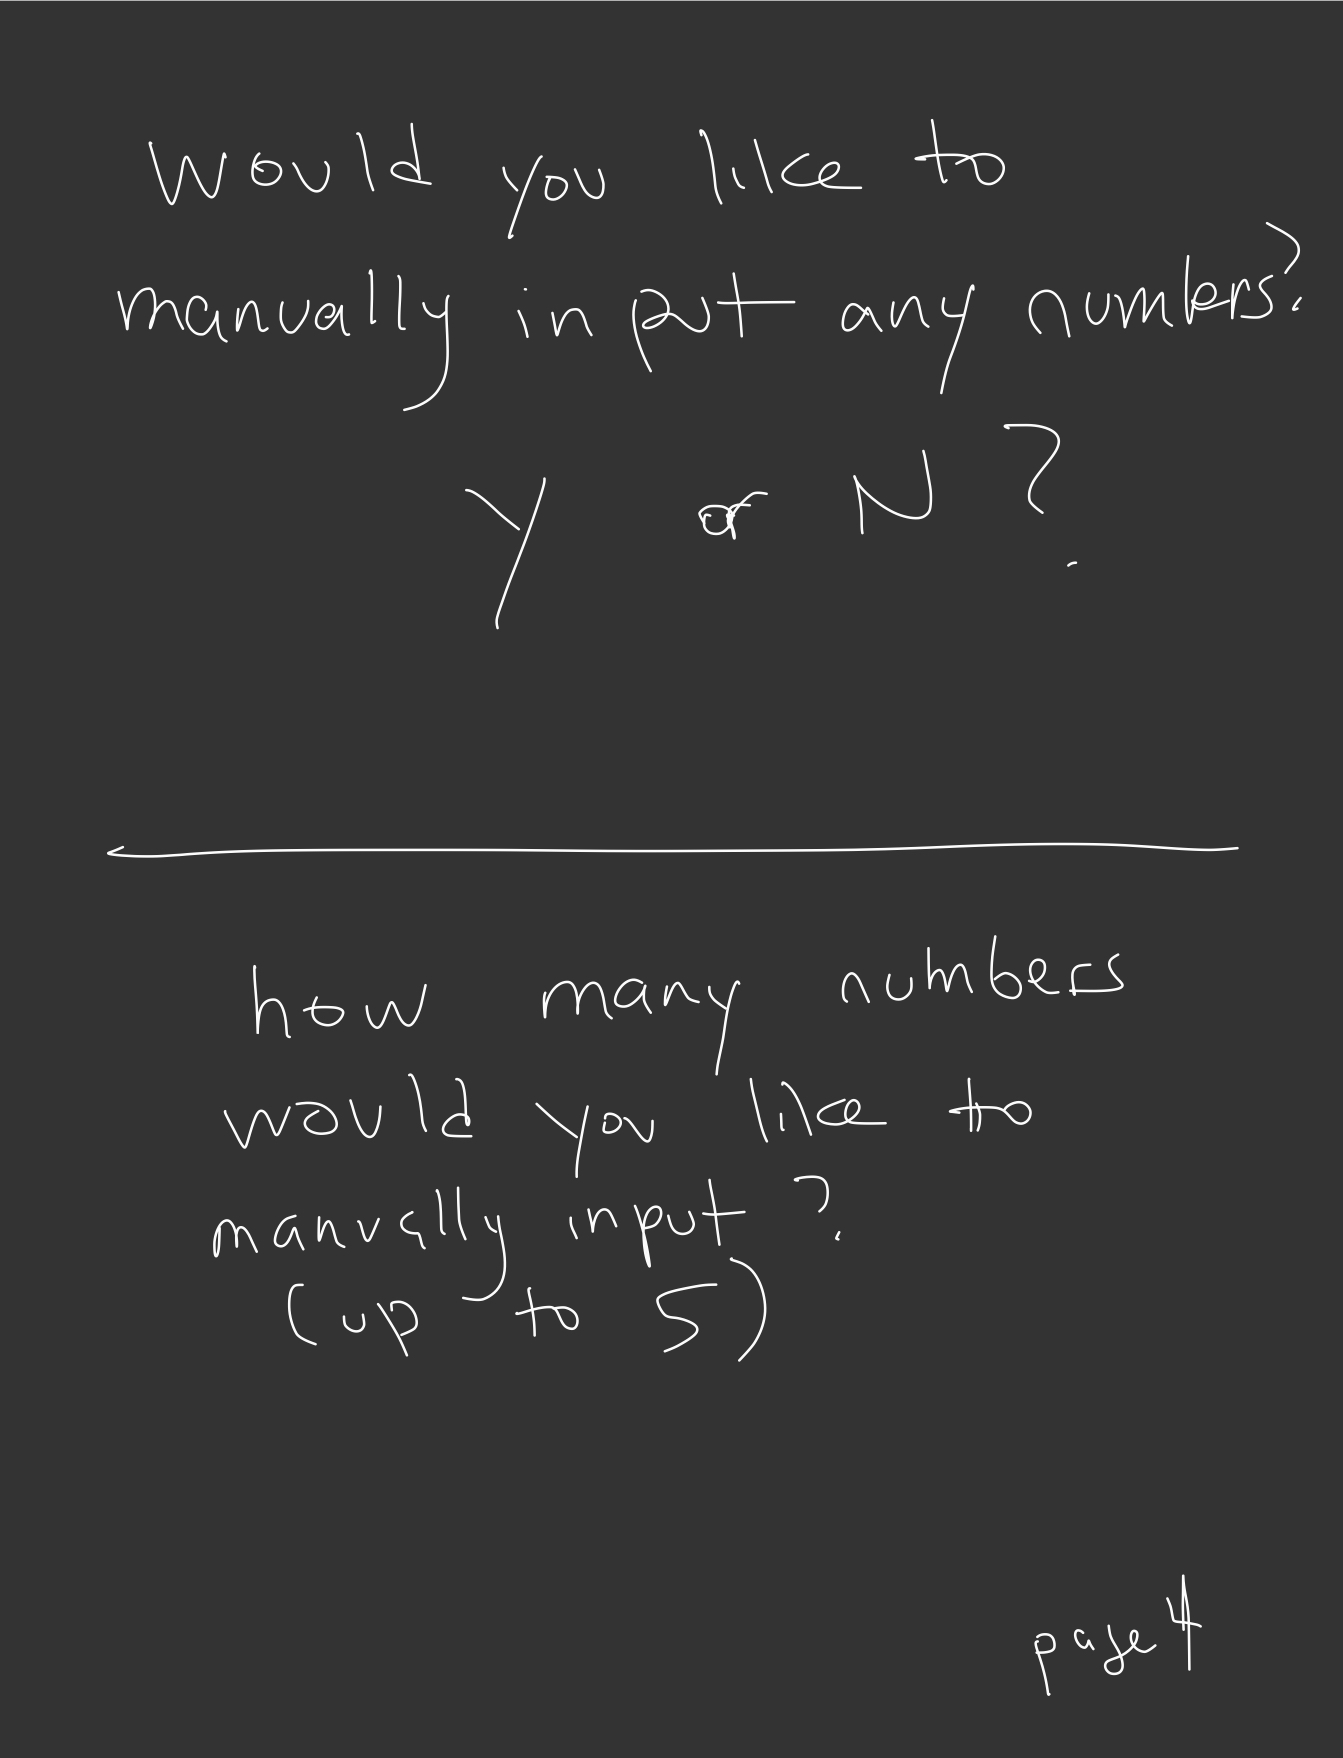 Would you like to
manually input any numbers?
Y or N?
how many numbers
would you like to
manually input?
(up to 5)
page 4